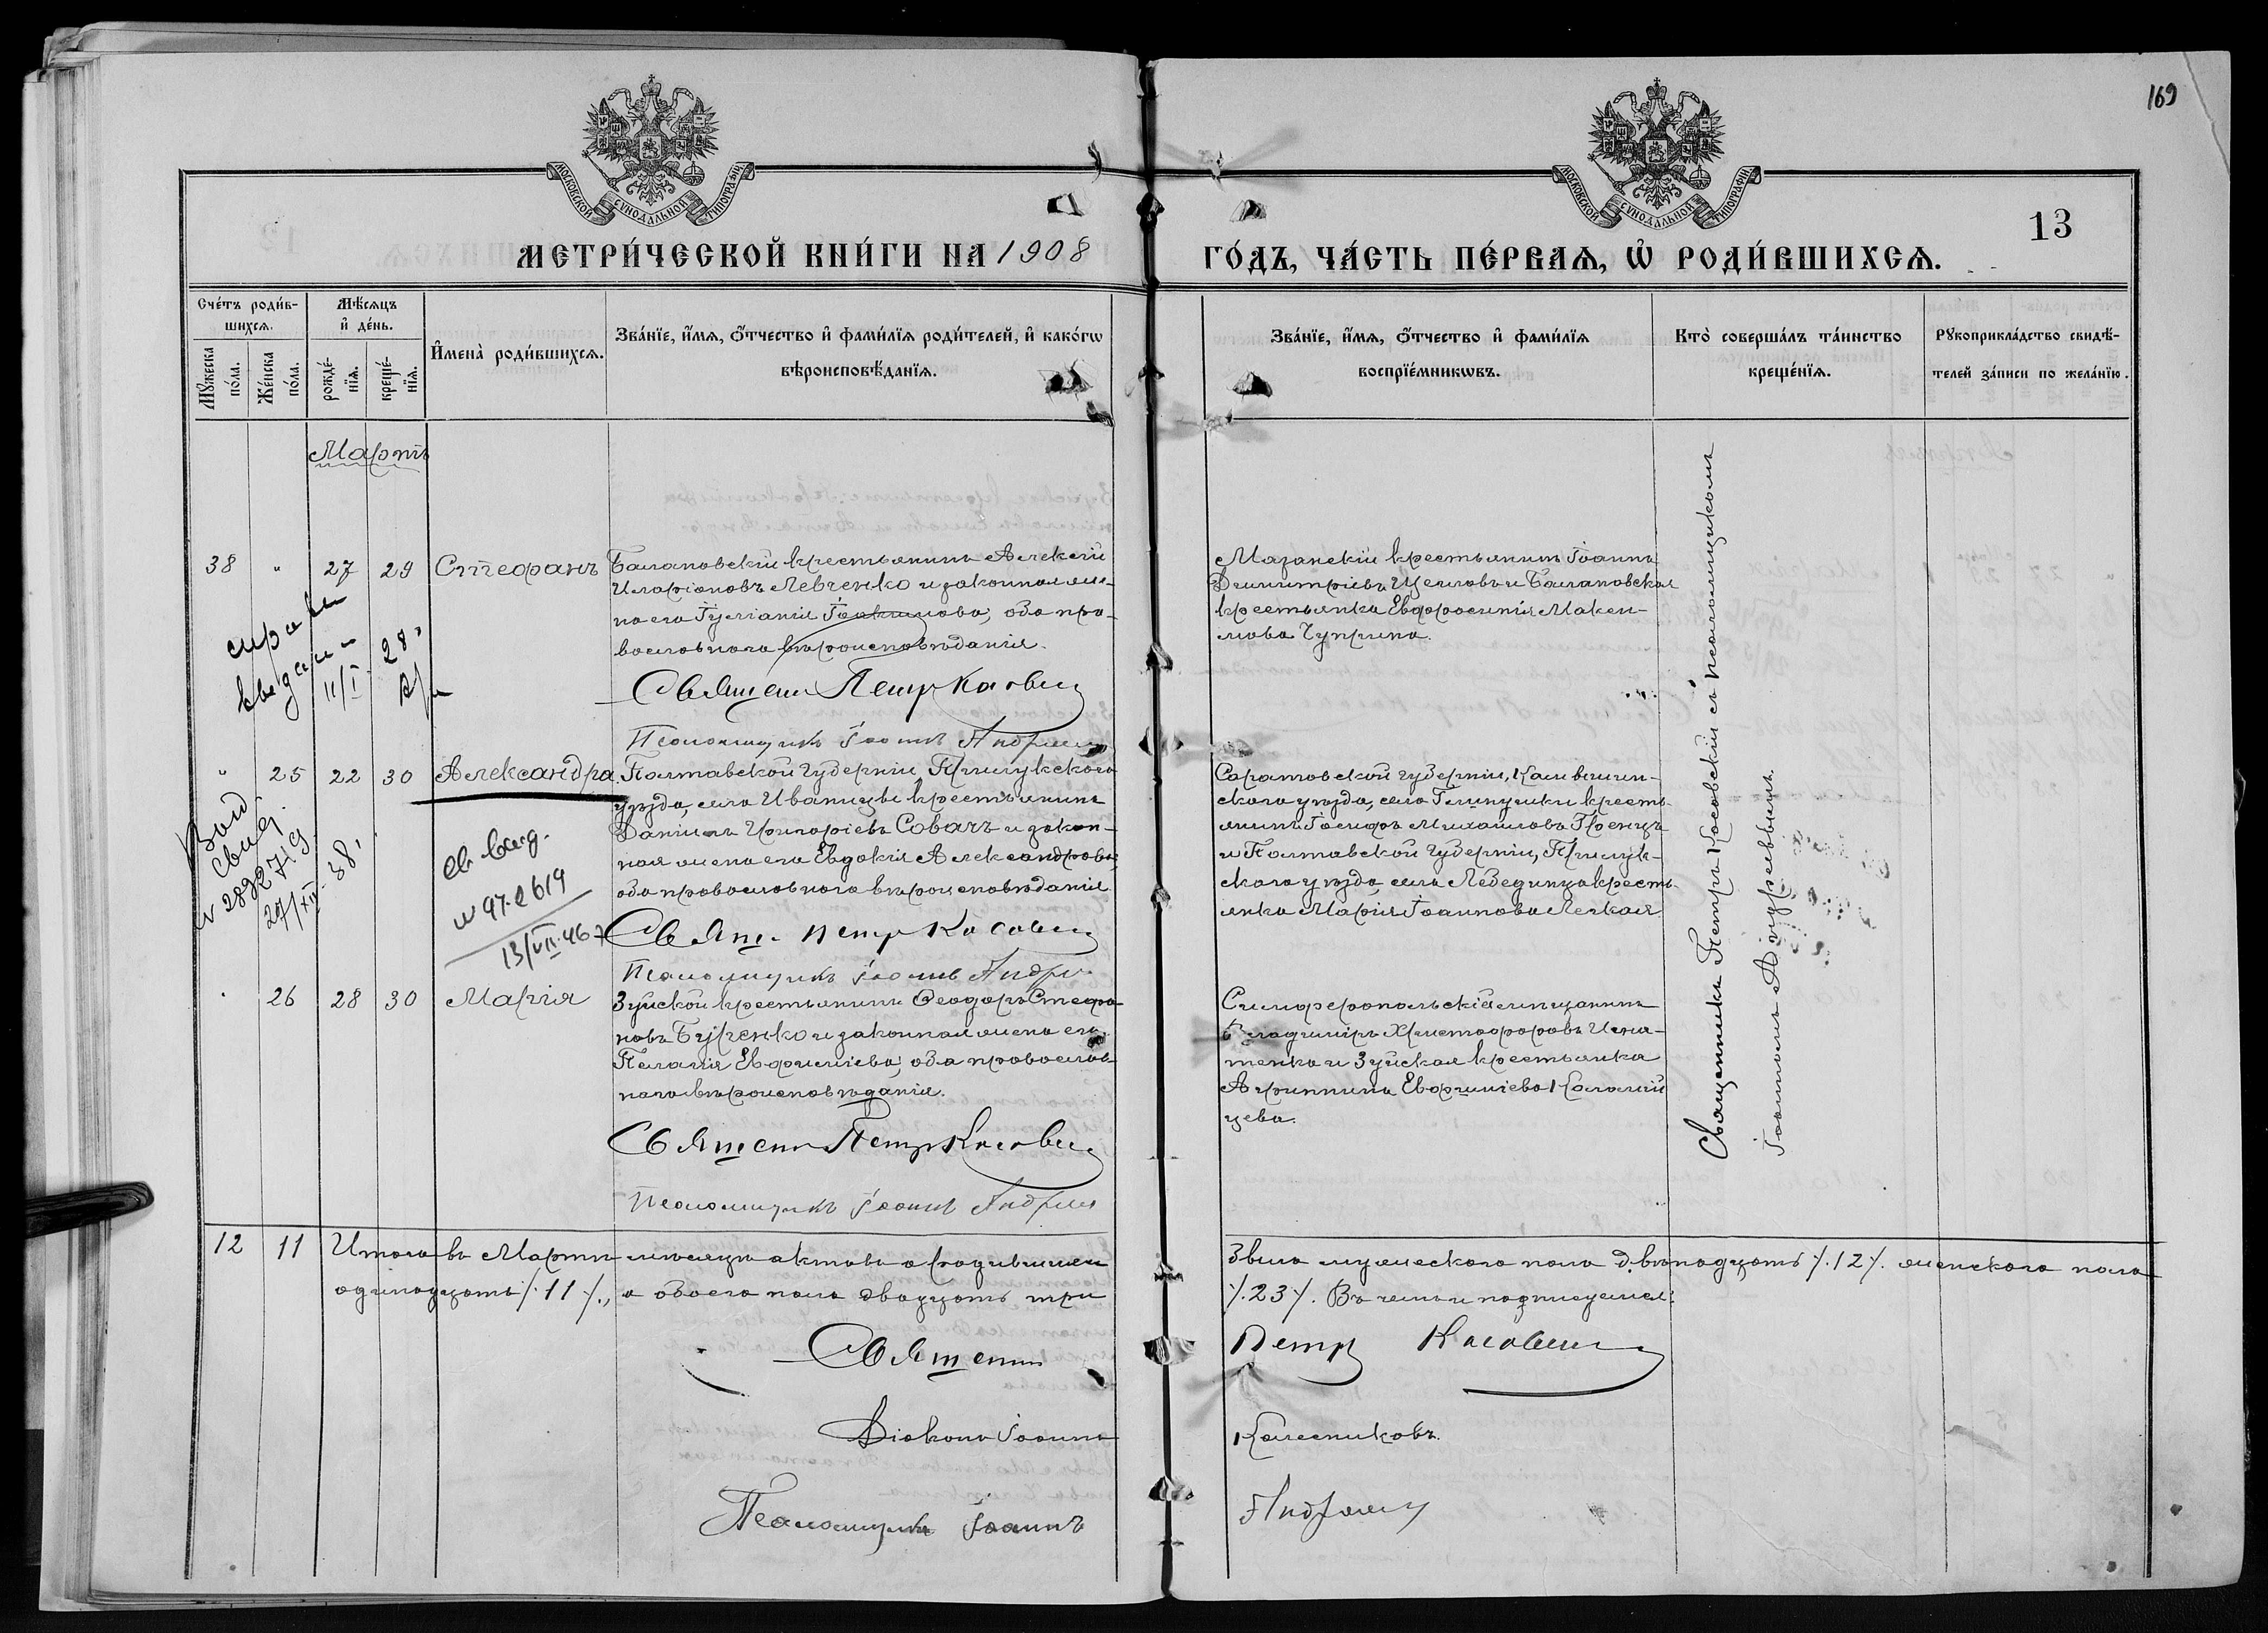 169
МОСКОВСКОЙ СѴНОДАЛЬНОЙ ТИПОГРАФІИ
МОСКОВСКОЙ СѴНОДАЛЬНОЙ ТИПОГРАФІИ
13
МЕТРИ́ЧЕСКОЙ КНИ́ГИ НА 1908 ГО́ДЪ, ЧА́СТЬ ПЕ́РВАѦ, Ѡ҆ РОДИ́ВШИХСѦ.
Сче́тъ роди́в-
шихсѧ.
Мѣ́сѧцъ
и҆ де́нь.
Мꙋ́жеска
по́ла.
Же́нска
по́ла.
рожде́-
нїѧ.
креще́-
нїѧ.
И҆мена̀ роди́вшихсѧ.
Зва́нїе, и҆́мѧ, ѻ҆́тчество и҆ фами́лїѧ роди́телей, и҆ како́гѡ
вѣроисповѣ́данїѧ.
Зва́нїе, и҆́мѧ, ѻ҆́тчество и҆ фами́лїѧ
воспрїе́мникѡвъ.
Кто̀ соверша́лъ та́инство
креще́нїѧ.
Рꙋкоприкла́дство свидѣ́-
телей за́писи по жела́нїю.
Мартъ
38 " 27 29 Стефанъ
Балановскій крестьянинъ Алексій
Иларіоновъ Левченко и законная же-
на его Іуліанія Іоакимова, оба пра-
вославнаго вѣроисповѣданія.
Священ Петр Касовск
Псаломщикъ Іоаннъ Андреев
Мазанскій крестьянинъ Іоаннъ
Димитріевъ и Балановская
крестьянка Евфросинія Макси-
мова Чуприна.
11/I 28
" 25 22 30 Александра
Полтавской губерніи, Прилукскаго
уѣзда, села Иваницы крестьянинъ
Даніилъ Григоріевъ Собачъ и закон-
ная жена его Евдокія Александрова,
оба православнаго вѣроисповѣданія
Свящ. Петр Касовск
Псаломщикъ Іоаннъ Андре
Саратовской губерніи, Камышин-
скаго уѣзда, села крестья-
янинъ Іосифъ Михаиловъ
и Полтавской губерніи, Прилук-
скаго уѣзда, села Лебединца крестья-
янка Марія Іоаннова Легкая
29/XII 38
13/VII.46
" 26 28 30 Марія
Зуйской крестьянинъ Ѳеодоръ Стефа-
новъ Бурченко и законная жена его
Пелагія Евфиміева, оба православ-
наго вѣроисповѣданія.
Священ Петр Касовск
Псаломщикъ Іоаннъ Андреев
Симферопольскій мѣщанинъ
Владиміръ Христофоровъ Игна-
тенко и Зуйская крестьянка
Агриппина Евфиміева Каламій
цева.
Священникъ Петръ Косовскій съ псаломщикомъ
Іоанномъ Андреевымъ.
12 11 Итого въ Мартѣ мѣсяцѣ актовъ о родившихся звно мужескаго пола двѣнадцать /.12/. женскаго пола
одинадцать /.11/., а обоего пола двадцать три /.23/. Въ чемъ и подписуемся:
Священн Петр Касовск
Діаконъ Іоаннъ Колесниковъ.
Псаломщикъ Іоаннъ Андреев